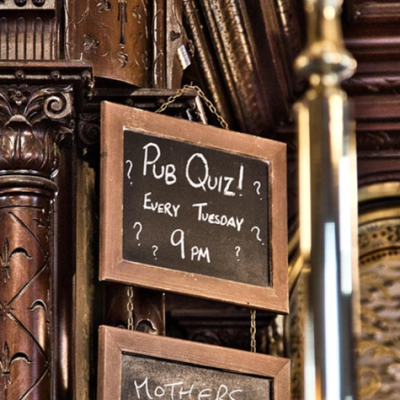 Pub Quiz!
? ?
Every Tuesday
? ?
9 pm
? ?
MOTHERS